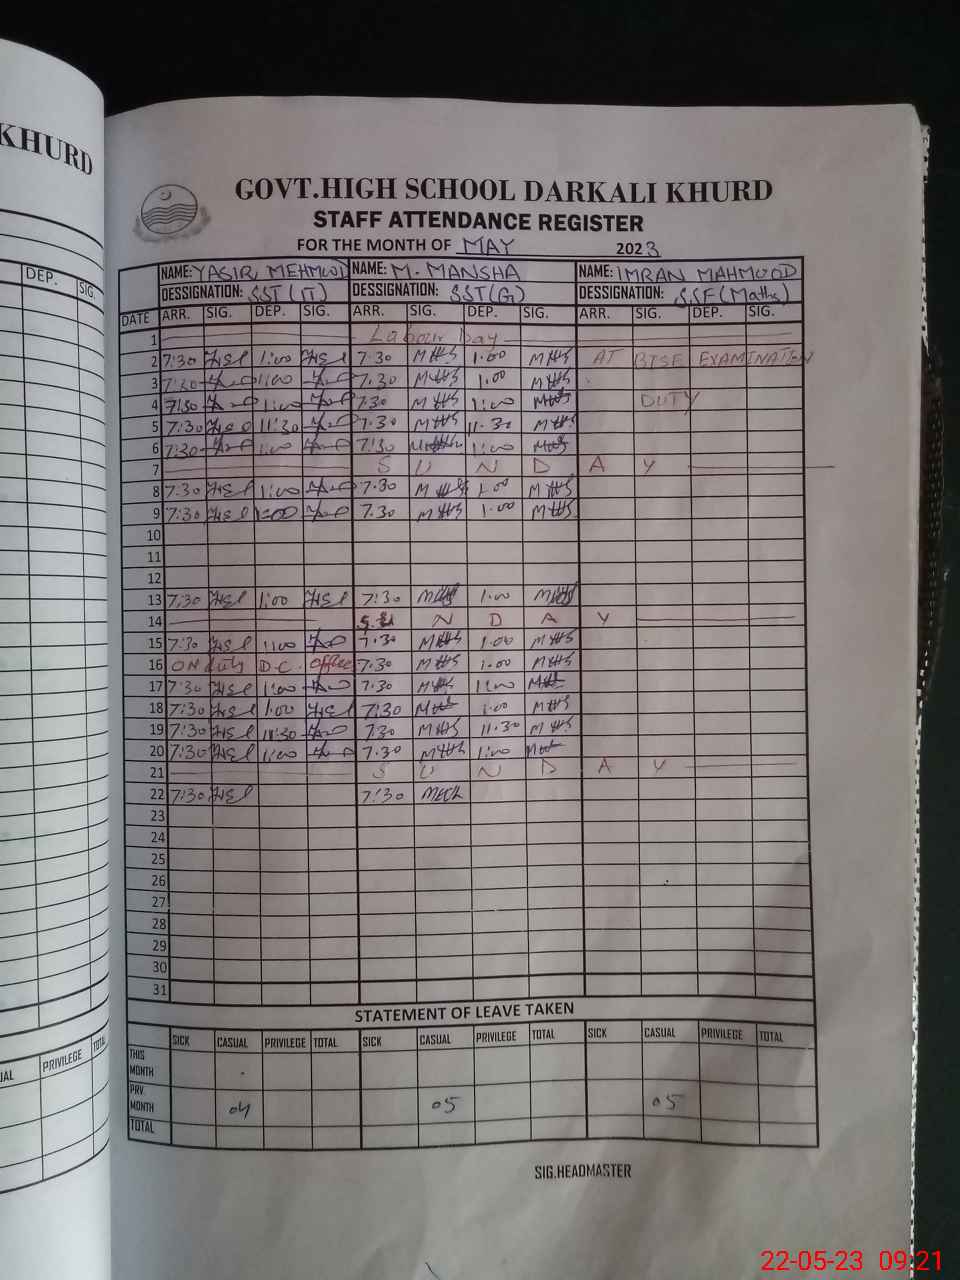 KHURD
DEP. SIG.
GOVT.HIGH SCHOOL DARKALI KHURD
STAFF ATTENDANCE REGISTER
FOR THE MONTH OF MAY 2023
NAME: YASIR MEHMOOD NAME: M. MANSHA NAME: IMRAN MAHMOOD
DESSIGNATION: SST(IT) DESSIGNATION: SST(G) DESSIGNATION: S.SE(Maths)
DATE ARR. SIG. DEP. SIG. ARR. SIG. DEP. SIG. ARR. SIG. DEP. SIG.
1 Labour Day
2 7:30 1:00 7:30 1:00 AT BISE EXAMINATION
3 7:30 1:00 7:30 1:00
4 7:30 1:00 7:30 1:00 DUTY
5 7:30 11:30 7:30 11:30
6 7:30 1:00 7:30 1:00
7 S U N D A Y
8 7:30 1:00 7:30 1:00
9 7:30 1:00 7:30 1:00
10
11
12
13 7:30 1:00 7:30 1:00
14 S U N D A Y
15 7:30 1:00 7:30 1:00
16 ON duty D.C. office 7:30 1:00
17 7:30 1:00 7:30 1:00
18 7:30 1:00 7:30 1:00
19 7:30 11:30 7:30 11:30
20 7:30 1:00 7:30 1:00
21 S U N D A Y
22 7:30 7:30
23
24
25
26
27
28
29
30
31
STATEMENT OF LEAVE TAKEN
SICK CASUAL PRIVILEGE TOTAL SICK CASUAL PRIVILEGE TOTAL SICK CASUAL PRIVILEGE TOTAL
THIS
MONTH
PRV.
MONTH 04 05 05
TOTAL
UAL PRIVILEGE TOTAL
SIG.HEADMASTER
22-05-23 09:21